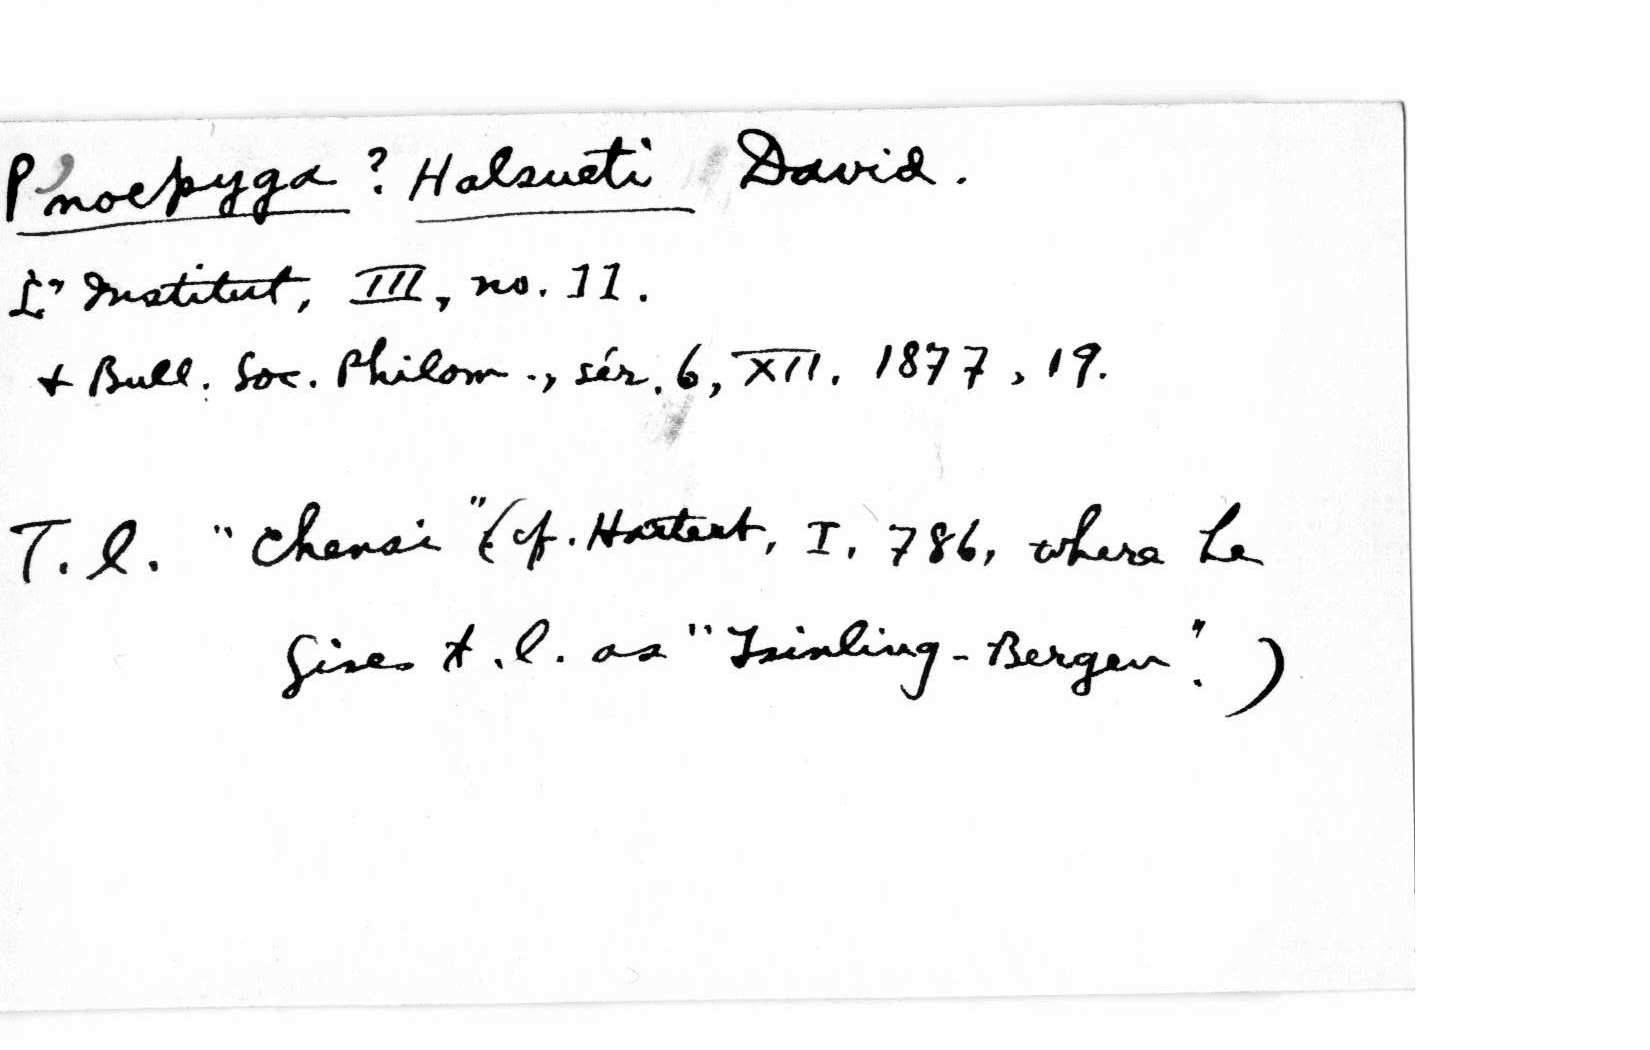 P'noepyga ? Halsueti David.
L' Institut, III, no. 11.
+ Bull. Soc. Philom., sér. 6, XII. 1877, 19.
T. l. "Chensi" (cf. Hartert, I. 786, where he
gives t. l. as "Tsinling-Bergen".)